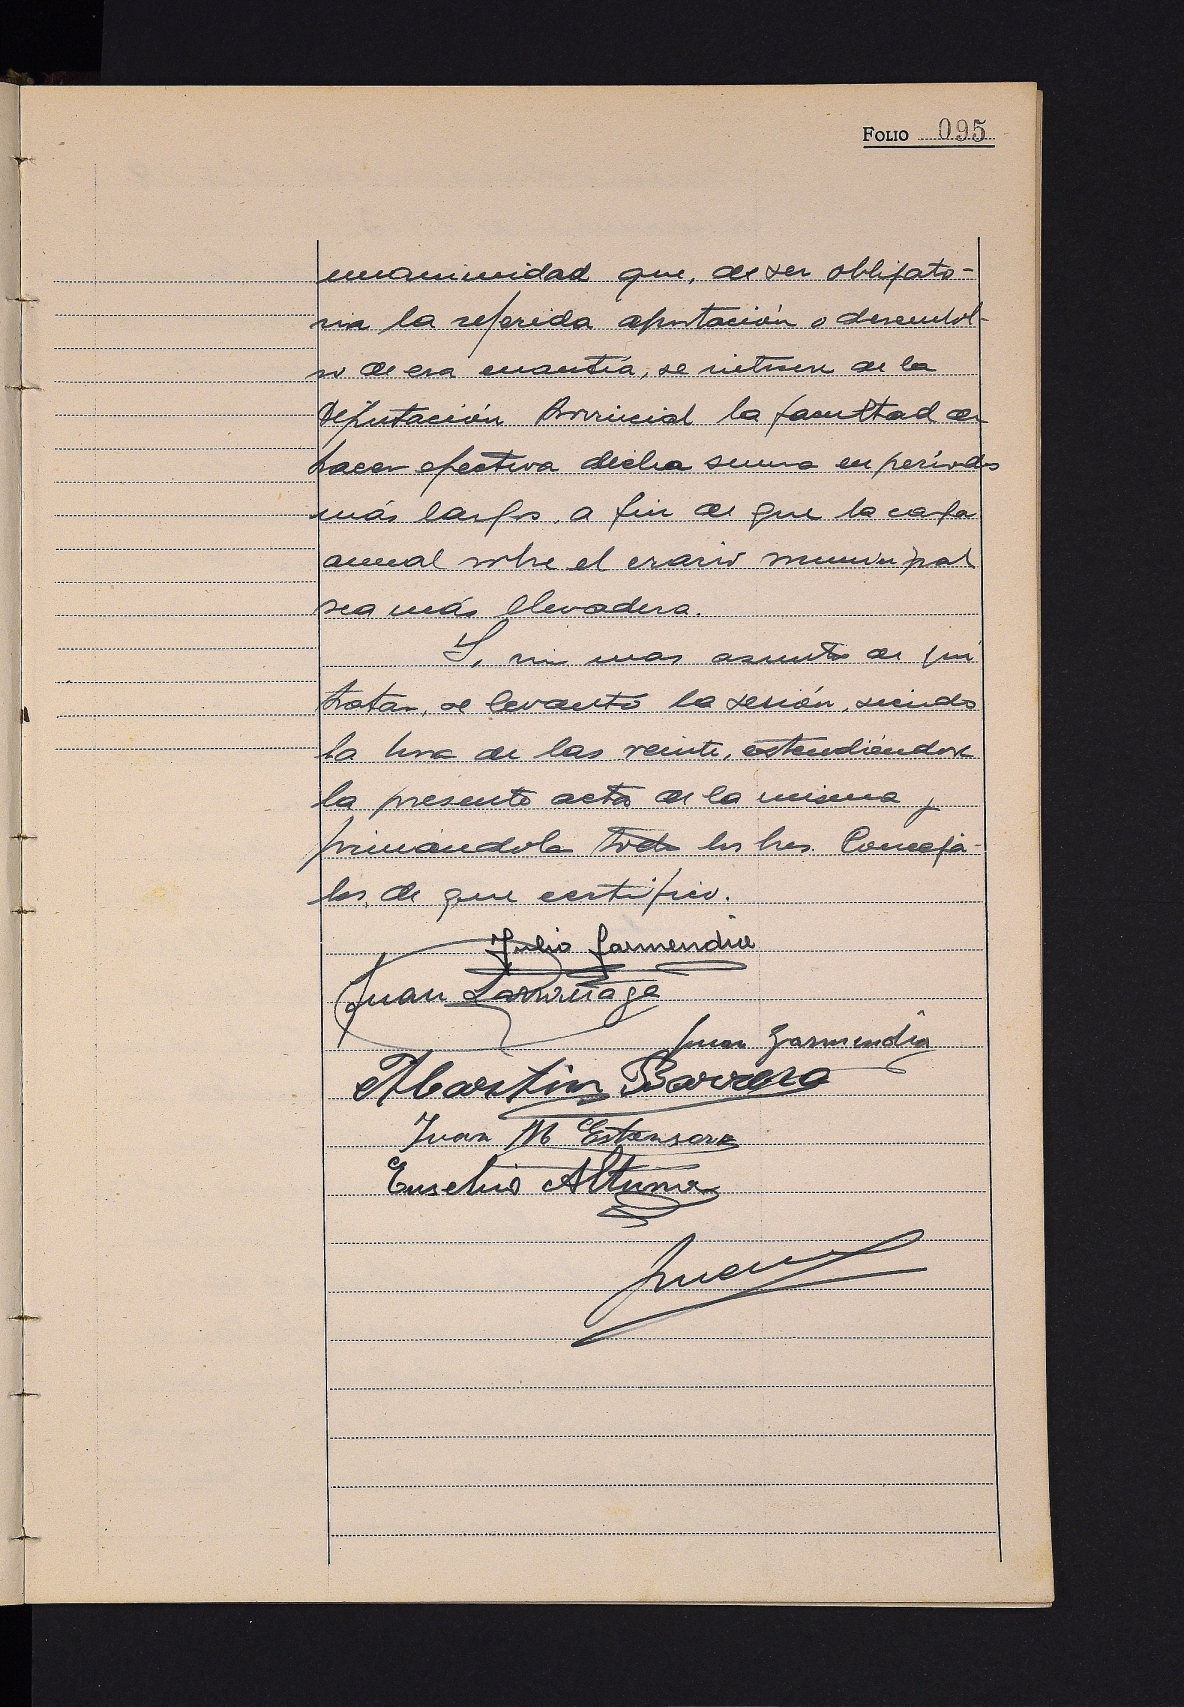 Folio 095
unanimidad que, de ser obligato-
ria la referida aportación o desembol-
so de esa cuantía, se interese de la
Diputación Provincial la facultad de
hacer efectiva dicha suma en períodos
más largos, a fin de que la carga
anual sobre el erario municipal
sea más llevadera.
Y, sin mas asunto de que
tratar, se levantó la sesión, siendo
la hora de las veinte, extendiéndose
la presente acta de la misma y
firmándola todos los Sres. Conceja-
les, de que certifico.
Julio Garmendia
Juan Larrañaga
Juan Garmendia
Martin Barrera
Juan M Estensoro
Eusebio Altuna